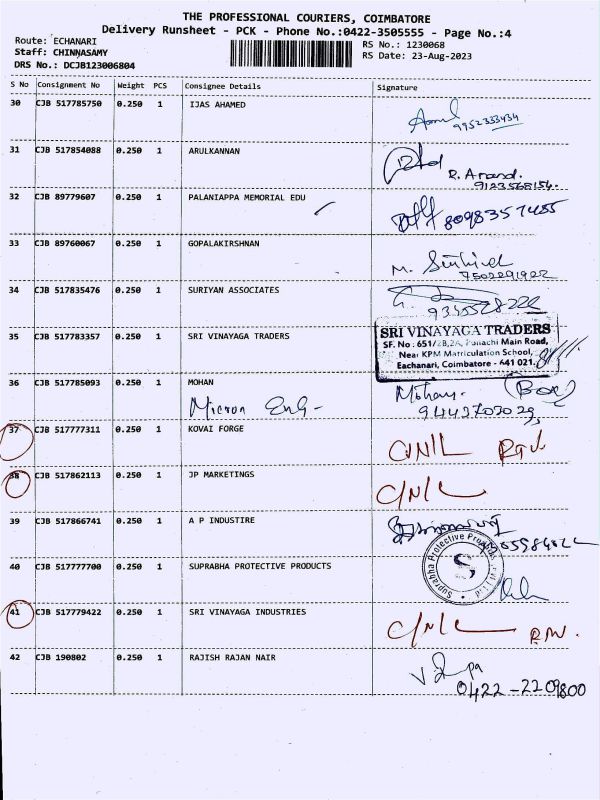 THE PROFESSIONAL COURIERS, COIMBATORE
Delivery Runsheet - PCK - Phone No.:0422-3505555 - Page No.:4
Route: ECHANARI
RS No.: 1230068
Staff: CHINNASAMY
RS Date: 23-Aug-2023
DRS No.: DCJB123006804
S No Consignment No Weight PCS Consignee Details Signature
30 CJB 517785750 0.250 1 IJAS AHAMED
9952333434
31 CJB 517854088 0.250 1 ARULKANNAN
R. Anand.
9123568154.
32 CJB 89779607 0.250 1 PALANIAPPA MEMORIAL EDU
8098357485
33 CJB 89760067 0.250 1 GOPALAKIRSHNAN
7502291922
34 CJB 517835476 0.250 1 SURIYAN ASSOCIATES
35 CJB 517783357 0.250 1 SRI VINAYAGA TRADERS
SRI VINAYAGA TRADERS
SF. No : 651/2B,2A, Pollachi Main Road,
Near KPM Matriculation School,
Eachanari, Coimbatore - 641 021.
36 CJB 517785093 0.250 1 MOHAN
Micron Eng-
Mohan.
37 CJB 517777311 0.250 1 KOVAI FORGE
38 CJB 517862113 0.250 1 JP MARKETINGS
C/N/L
39 CJB 517866741 0.250 1 A P INDUSTIRE
40 CJB 517777700 0.250 1 SUPRABHA PROTECTIVE PRODUCTS
Suprabha Protective Products Pvt Ltd
S
41 CJB 517779422 0.250 1 SRI VINAYAGA INDUSTRIES
C/N/L
42 CJB 190802 0.250 1 RAJISH RAJAN NAIR
0422-2209800